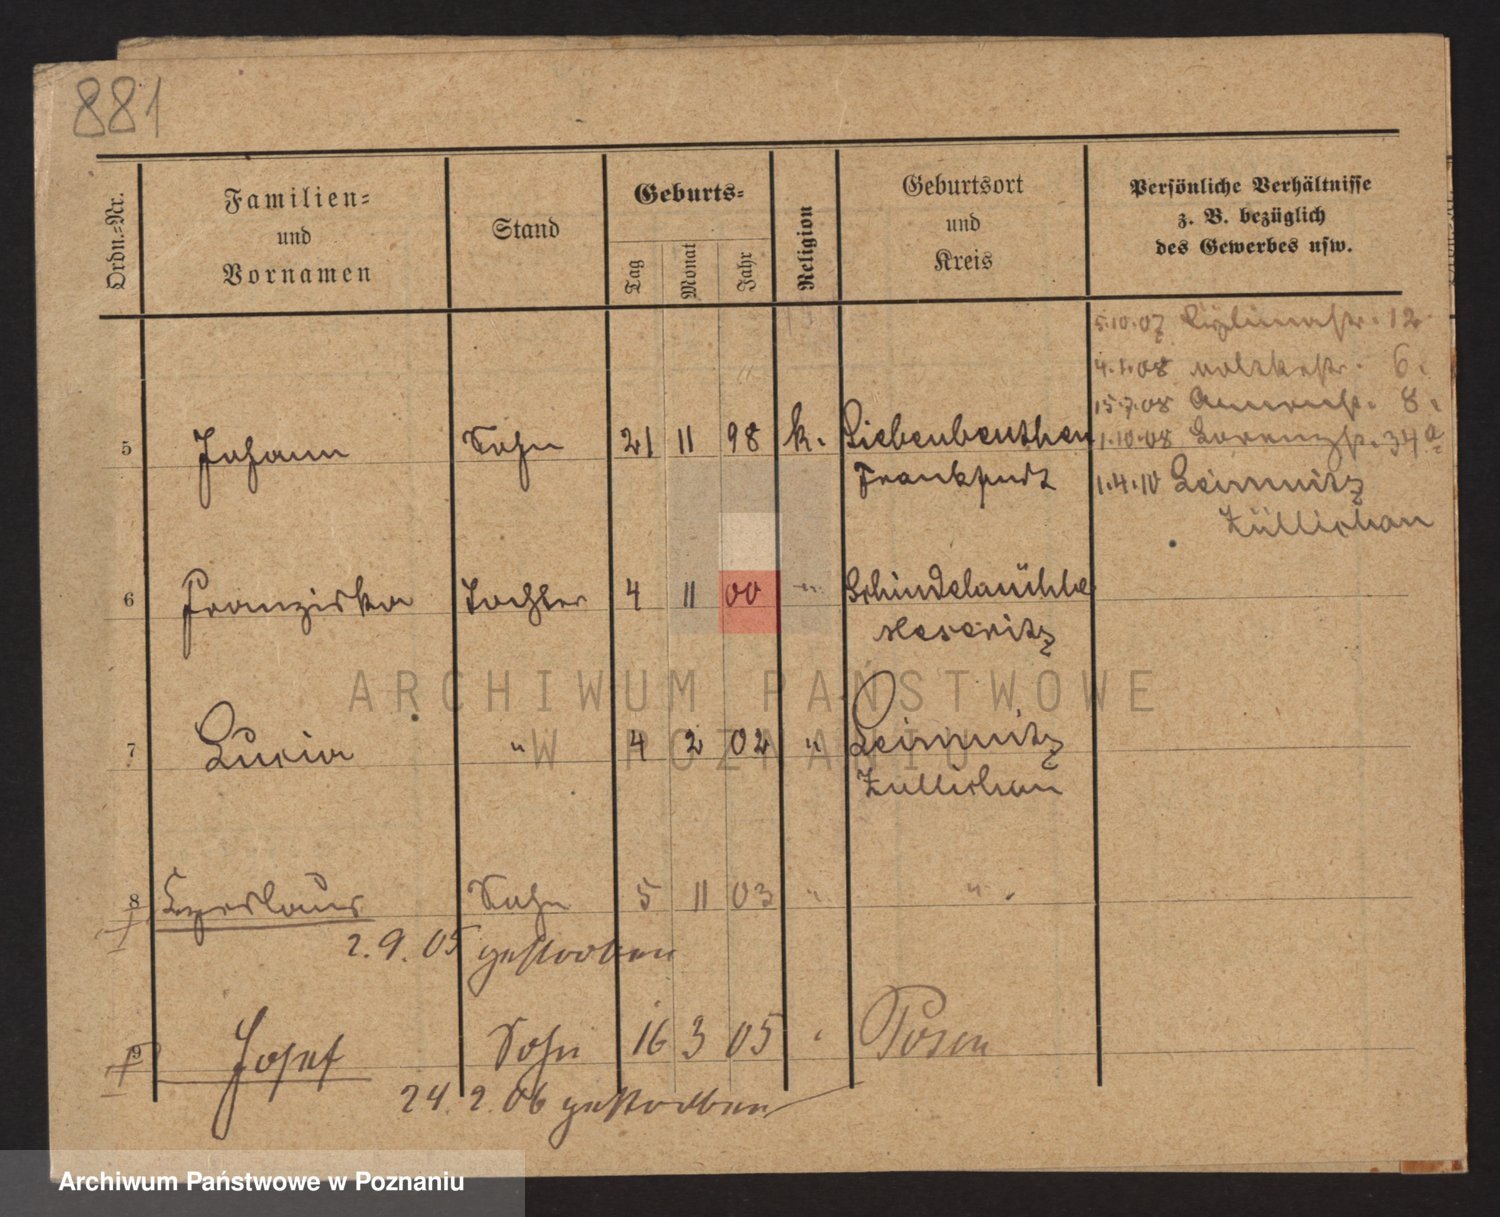 881
Ordn.-Nr.
Familien-
und
Vornamen
Stand
Geburts-
Tag
Monat
Jahr
Religion
Geburtsort
und
Kreis
Persönliche Verhältnisse
z. B. bezüglich
des Gewerbes usw.
5.10.07 12
4.1.08 6.
15.7.08 8.
5 Johann Sohn 21 11 98 k. Liebenbeuthen 1.10.08 34a
Frankfurt 1.4.10 Leimnitz
Züllichau
6 Franziska Tochter 4 11 00 " Schindelmühle
Meseritz
7 Lucia " 4 2 02 " Leimnitz
Züllichau
8 Czeslaus Sohn 5 11 03 " "
2.9.05 gestorben
9 Josef Sohn 16 3 05 " Posen
24.2.06 gestorben
ARCHIWUM PAŃSTWOWE
W POZNANIU
Archiwum Państwowe w Poznaniu